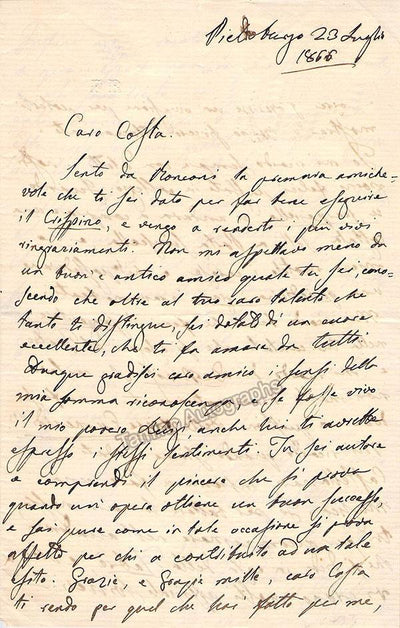 Pietroburgo 23 Luglio
1866
Caro Costa.
Sento da Ronconi la premura amiche-
vole che ti sei dato per far bene eseguire
il Crispino, e vengo a renderti i più vivi
ringraziamenti. Non mi aspettavo meno da
un buon e antico amico quale tu sei, cono-
scendo che oltre al tuo raro talento che
tanto ti distingue, sei dotato di un cuore
eccellente, che ti fa amare da tutti.
Dunque gradisci caro amico i sensi della
mia somma riconoscenza, e se fosse vivo
il mio povero anche lui ti avrebbe
espresso i stessi sentimenti. Tu sei autore
e comprendi il piacere che si prova
quando un'opera ottiene un buon successo,
e sai pure come in tale occasione si prova
affetto per chi a contribuito ad un tale
esito. Grazie, e grazie mille, caro Costa
ti rendo per quel che hai fatto per me,
Tamino Autographs